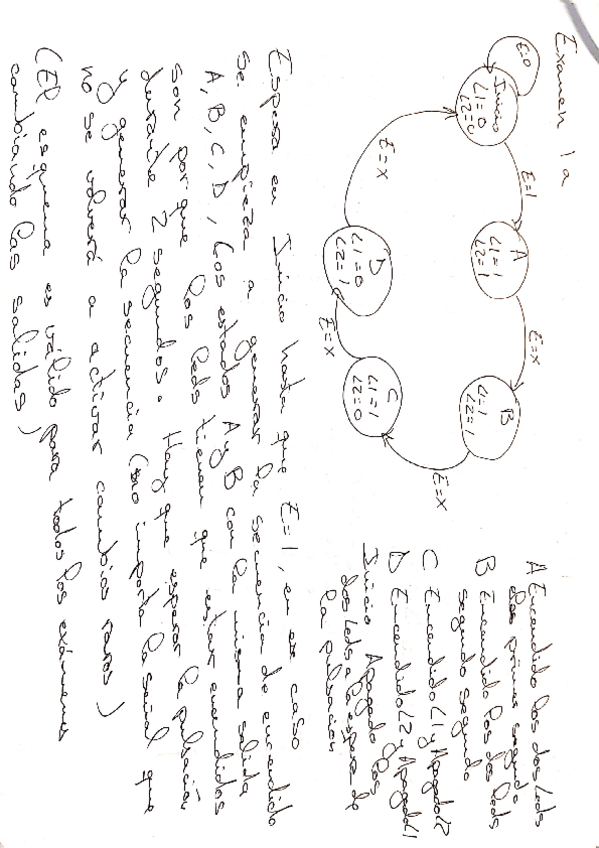 Examen 1a
E=0
Inicio
L1=0
L2=0
E=1
A
L1=1
L2=1
E=x
B
L1=1
L2=1
E=x
C
L1=1
L2=0
E=x
D
L1=0
L2=1
E=x
A Encendido los dos Leds
dos primer segundo
B Encendido los dos Leds
segundo segundo
C Encendido L1 y Apagado L2
D Encendido L2 y Apagado L1
Inicio Apagado los
dos Leds a la espera de
la pulsación
Espera en Inicio hasta que E=1, en ese caso
se empieza a generar la secuencia de encendido
A, B, C, D, los estados A y B con la misma salida
son porque los leds tienen que estar encendidos
durante 2 segundos. Hay que esperar la pulsación
y generar la secuencia (no importa la señal que
no se volverá a activar cambios raros)
(El esquema es válido para todos los exámenes
cambiando las salidas)